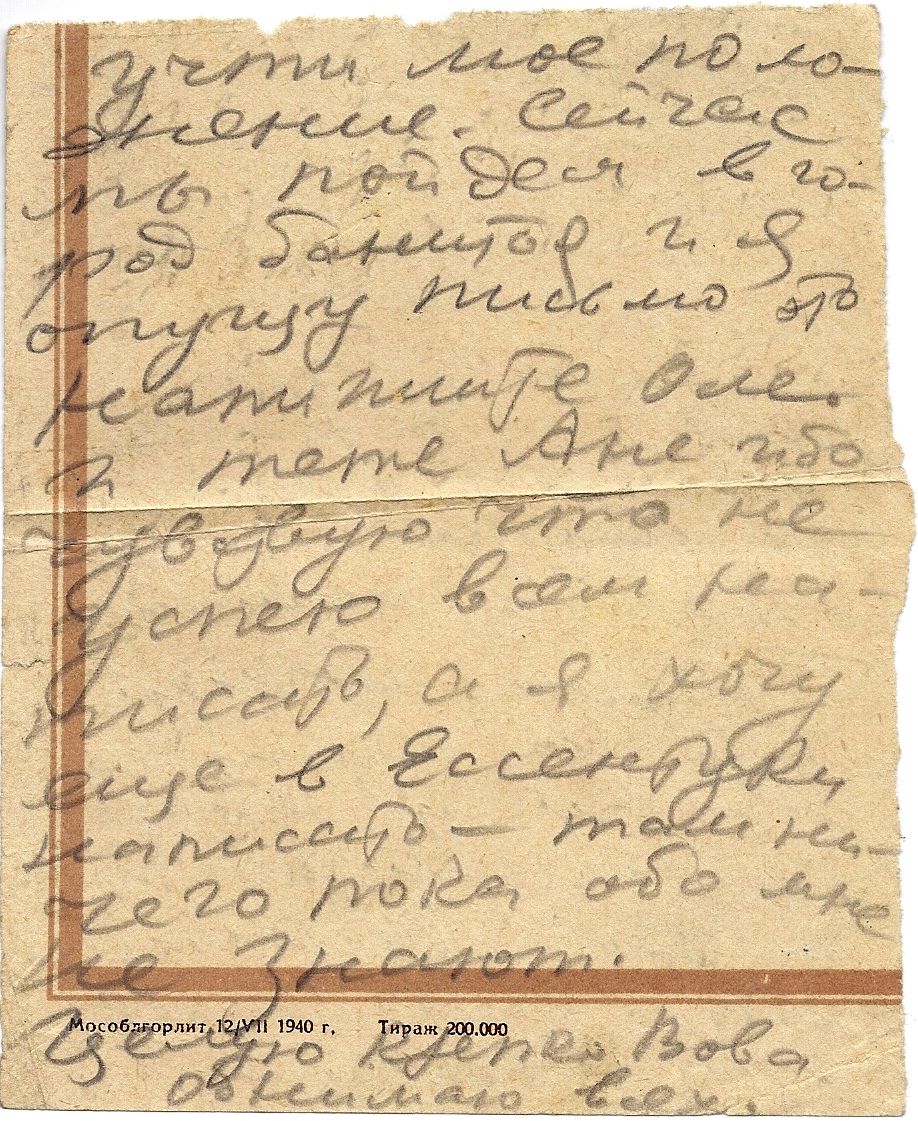 учти мое поло-
жение. Сейчас
мы пойдем в го-
род и я
опущу письмо это
напишите Оле
и тете Ане ибо
чувствую что не
успею всем на-
писать, а я хочу
еще в Ессентуки
написать — там ни-
чего пока обо мне
не знают.
Мособлгорлит 12/VII 1940 г, Тираж 200.000
Целую крепко Вова
обнимаю всех.